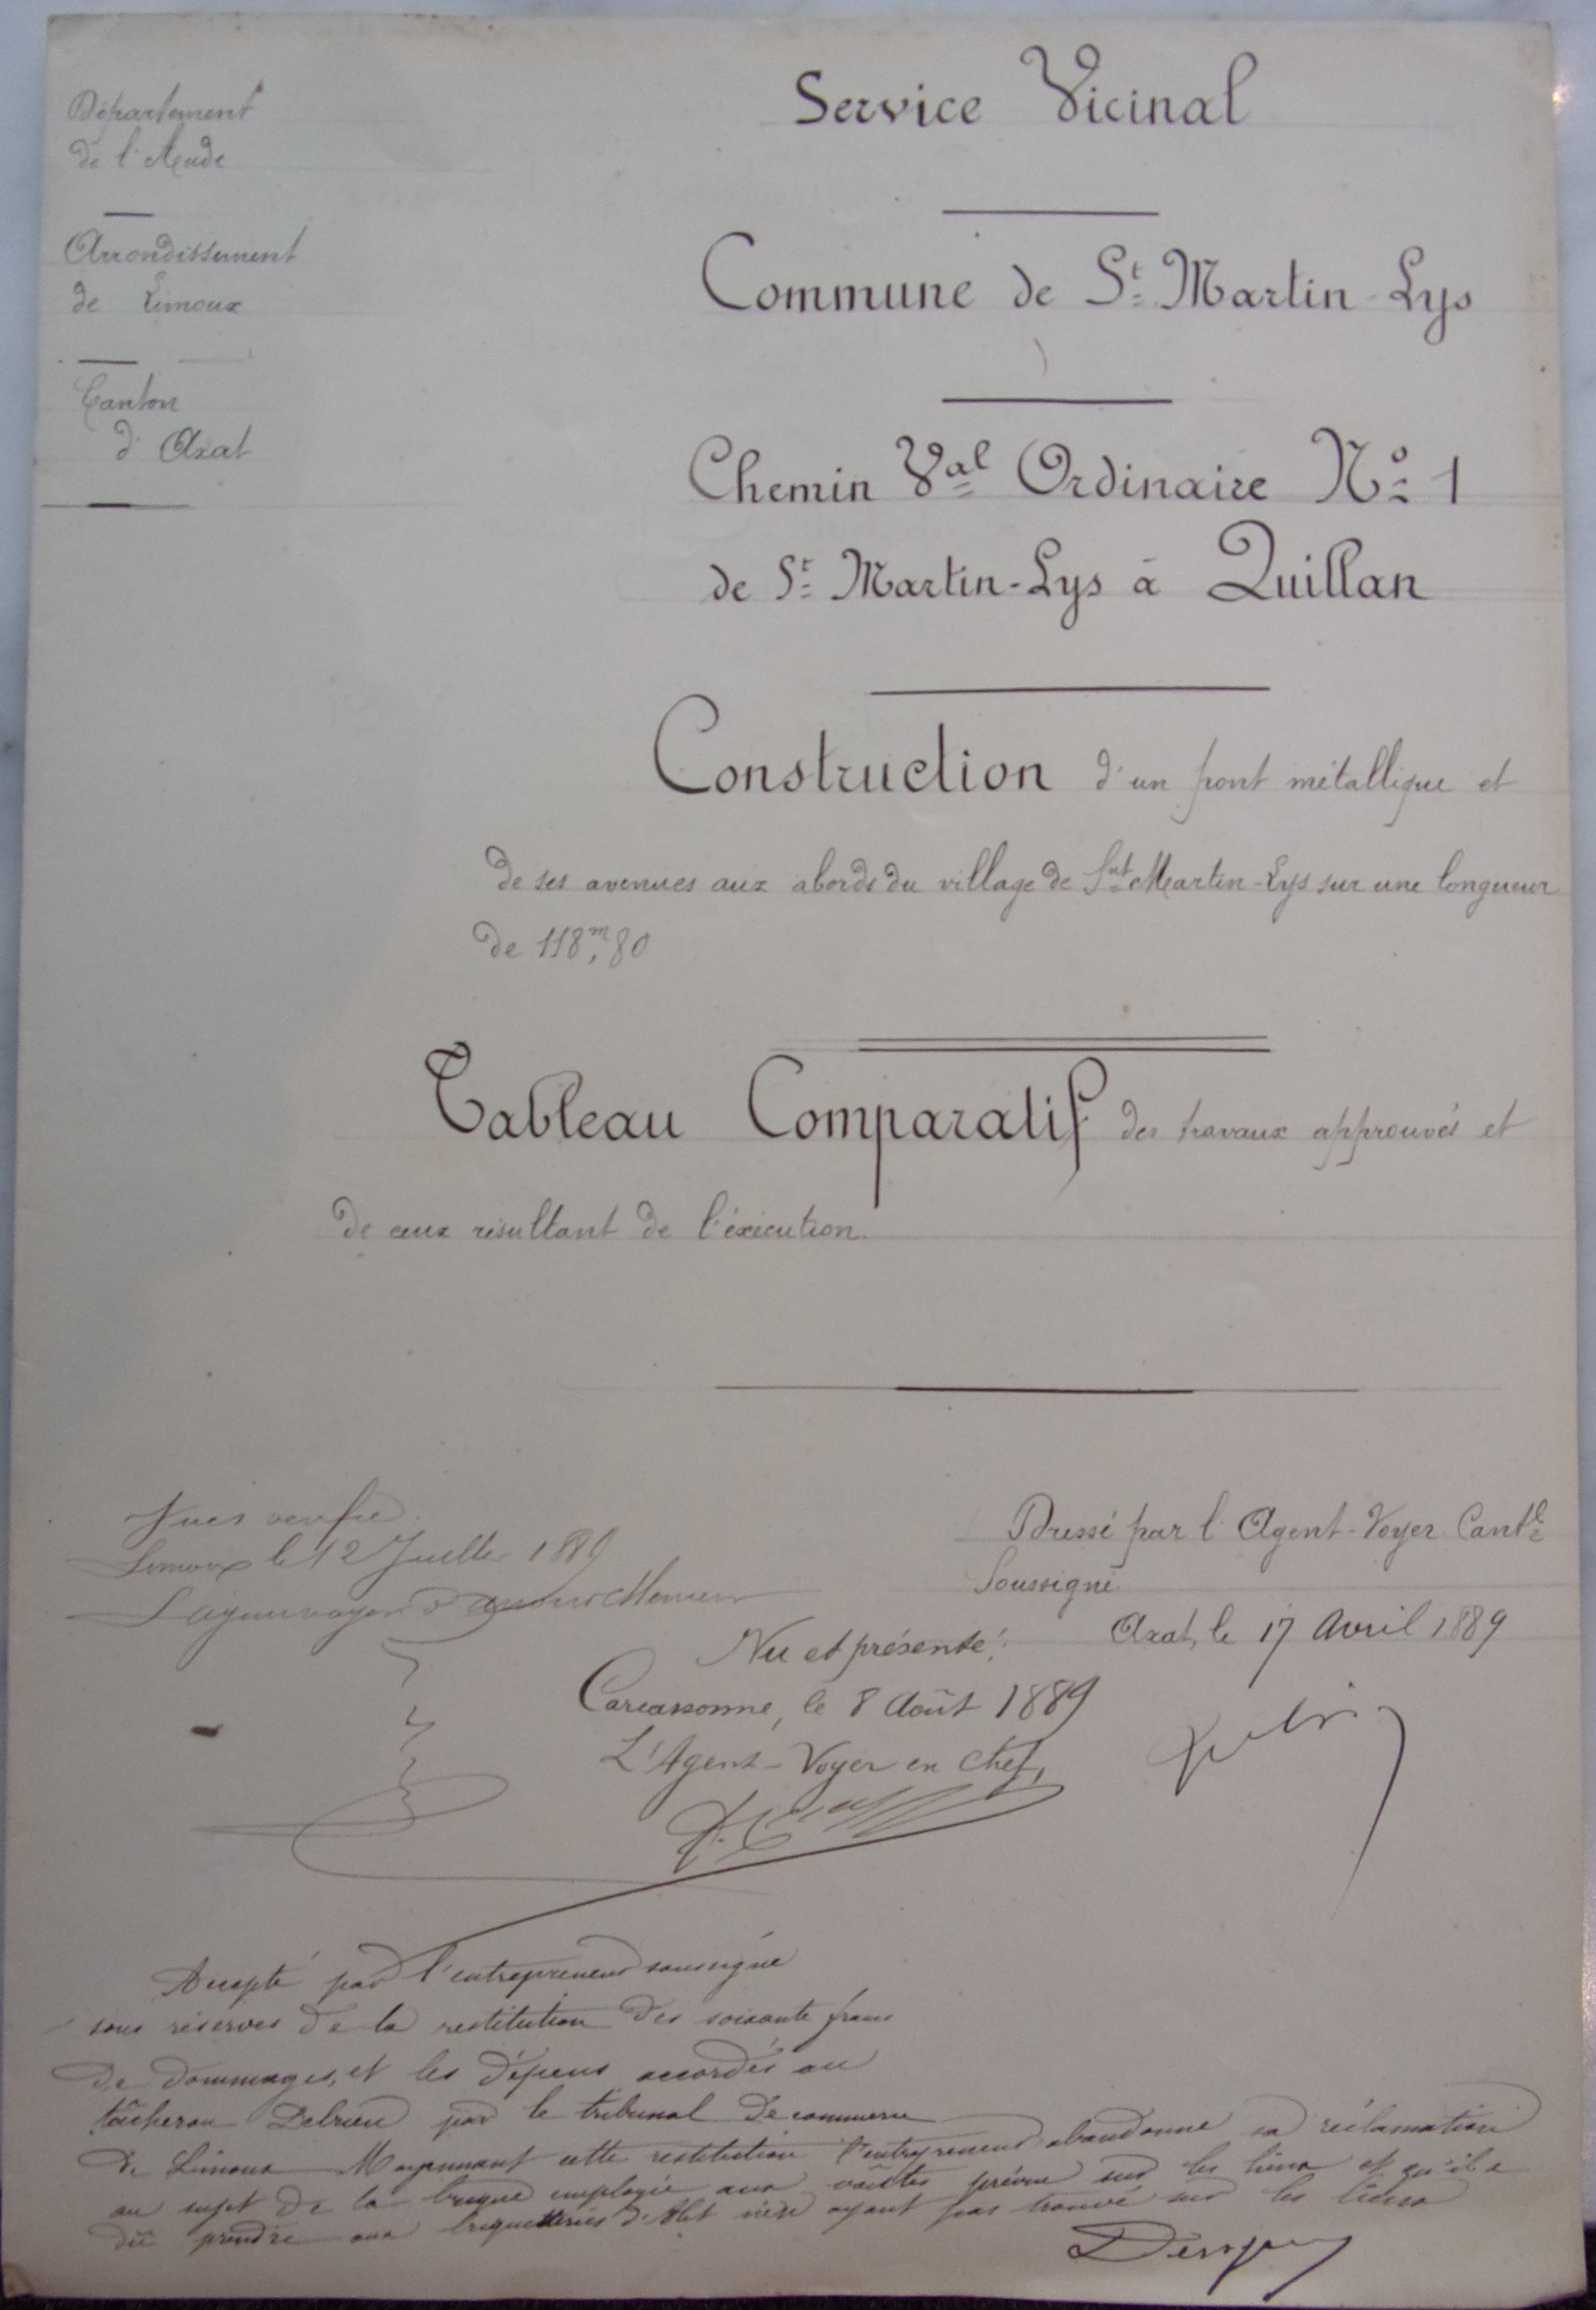 Département
de l'Aude
Arrondissement
de Limoux
Canton
d'Axat
Service Vicinal
Commune de St Martin-Lys
Chemin Val Ordinaire No 1
de St Martin-Lys à Quillan
Construction d'un pont métallique et
de ses avenues aux abords du village de Snt Martin-Lys sur une longueur
de 118m,80
Tableau Comparatif des travaux approuvés et
de ceux résultant de l'éxécution.
Limoux le 12 Juillet 1889
Dressé par l'Agent-Voyer Cantl
Soussigné
Axat, le 17 Avril 1889
Vu et présenté:
Carcassonne, le 8 Août 1889
L'Agent-Voyer en Chef,
Accepté par l'entrepreneur soussigné
sous réserves de la restitution des soixante francs
de dommages, et les dépens accordés au
tâcheron Delrieu par le tribunal de commerce
de Limoux Moyennant cette restitution l'entrepreneur abandonne sa réclamation
au sujet de la brique employée aux voûtes prévue sur les lieux et qu'il a
dû prendre aux briquetteries d'Alet n'en ayant pas trouvé sur les lieux